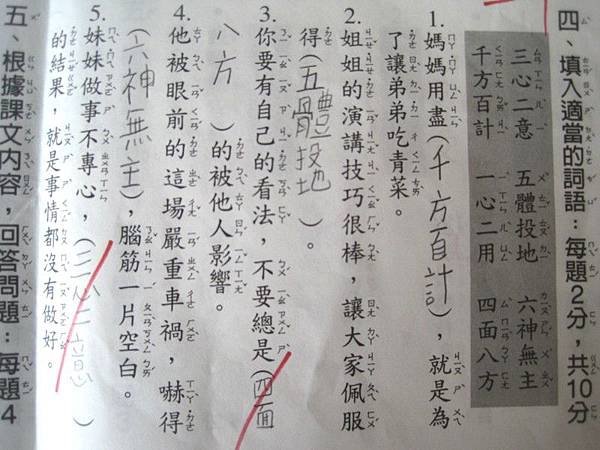 四、填入適當的詞語：每題2分，共10分
三心二意 五體投地 六神無主
千方百計 一心二用 四面八方
1. 媽媽用盡（千方百計），就是為
了讓弟弟吃青菜。
2. 姐姐的演講技巧很棒，讓大家佩服
得（五體投地）。
3. 你要有自己的看法，不要總是（四面
八方）的被他人影響。
4. 他被眼前的這場嚴重車禍，嚇得
（六神無主），腦筋一片空白。
5. 妹妹做事不專心，（三心二意）
的結果，就是事情都沒有做好。
五、根據課文內容，回答問題：每題4